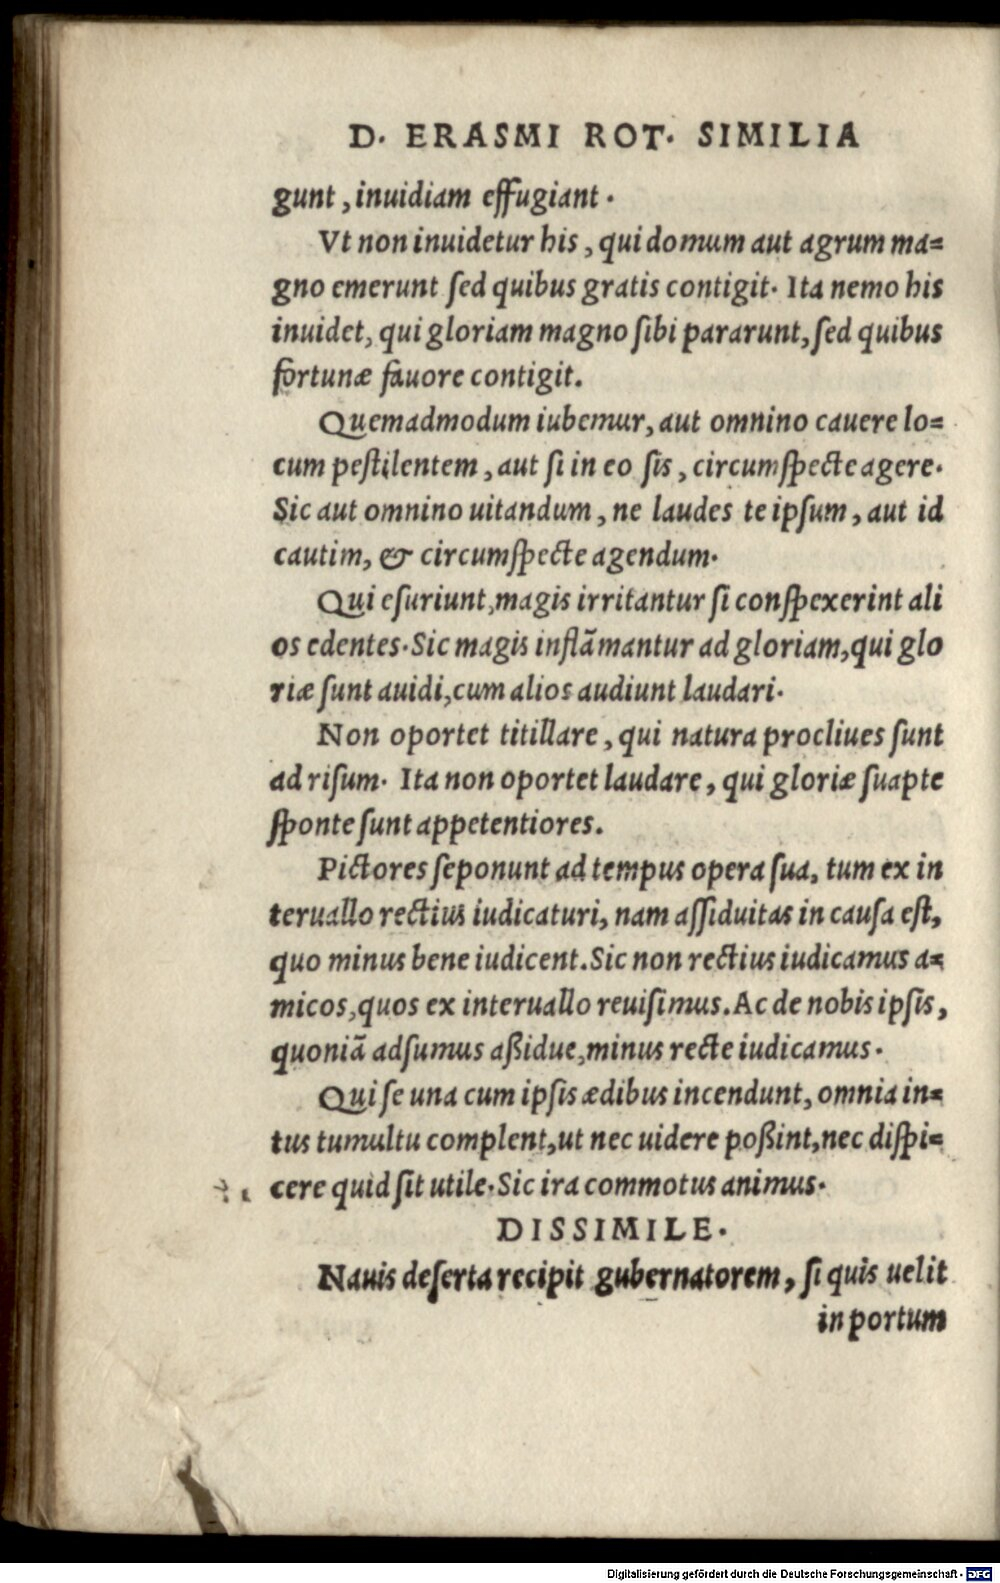 D. ERASMI ROT. SIMILIA
gunt, inuidiam effugiant.
Vt non inuidetur his, qui domum aut agrum ma=
gno emerunt sed quibus gratis contigit. Ita nemo his
inuidet, qui gloriam magno sibi pararunt, sed quibus
fortunæ fauore contigit.
Quemadmodum iubemur, aut omnino cauere lo=
cum pestilentem, aut si in eo sis, circumspecte agere.
Sic aut omnino uitandum, ne laudes te ipsum, aut id
cautim, & circumspecte agendum.
Qui esuriunt, magis irritantur si conspexerint ali
os edentes. Sic magis inflãmantur ad gloriam, qui glo
riæ sunt auidi, cum alios audiunt laudari.
Non oportet titillare, qui natura procliues sunt
ad risum. Ita non oportet laudare, qui gloriæ suapte
sponte sunt appetentiores.
Pictores seponunt ad tempus opera sua, tum ex in
teruallo rectius iudicaturi, nam assiduitas in causa est,
quo minus bene iudicent. Sic non rectius iudicamus a=
micos, quos ex interuallo reuisimus. Ac de nobis ipsis,
quoniã adsumus aßidue, minus recte iudicamus.
Qui se una cum ipsis ædibus incendunt, omnia in=
tus tumultu complent, ut nec uidere poßint, nec dispi=
cere quid sit utile. Sic ira commotus animus.
DISSIMILE.
Nauis deserta recipit gubernatorem, si quis uelit
in portum
Digitalisierung gefördert durch die Deutsche Forschungsgemeinschaft - DFG